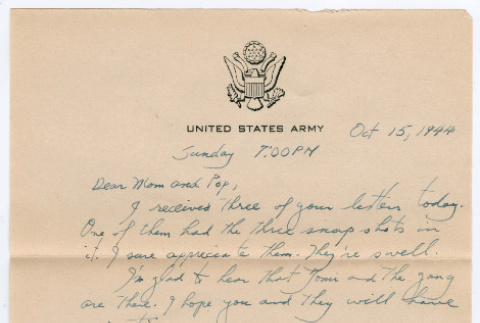 UNITED STATES ARMY
Oct 15, 1944
Sunday 7:00PM
Dear Mom and Pop,
I received three of your letters today.
One of them had the three snap shots in
it. I sure appreciate them. They're swell.
I'm glad to hear that Tomi and the gang
are there. I hope you and they will have